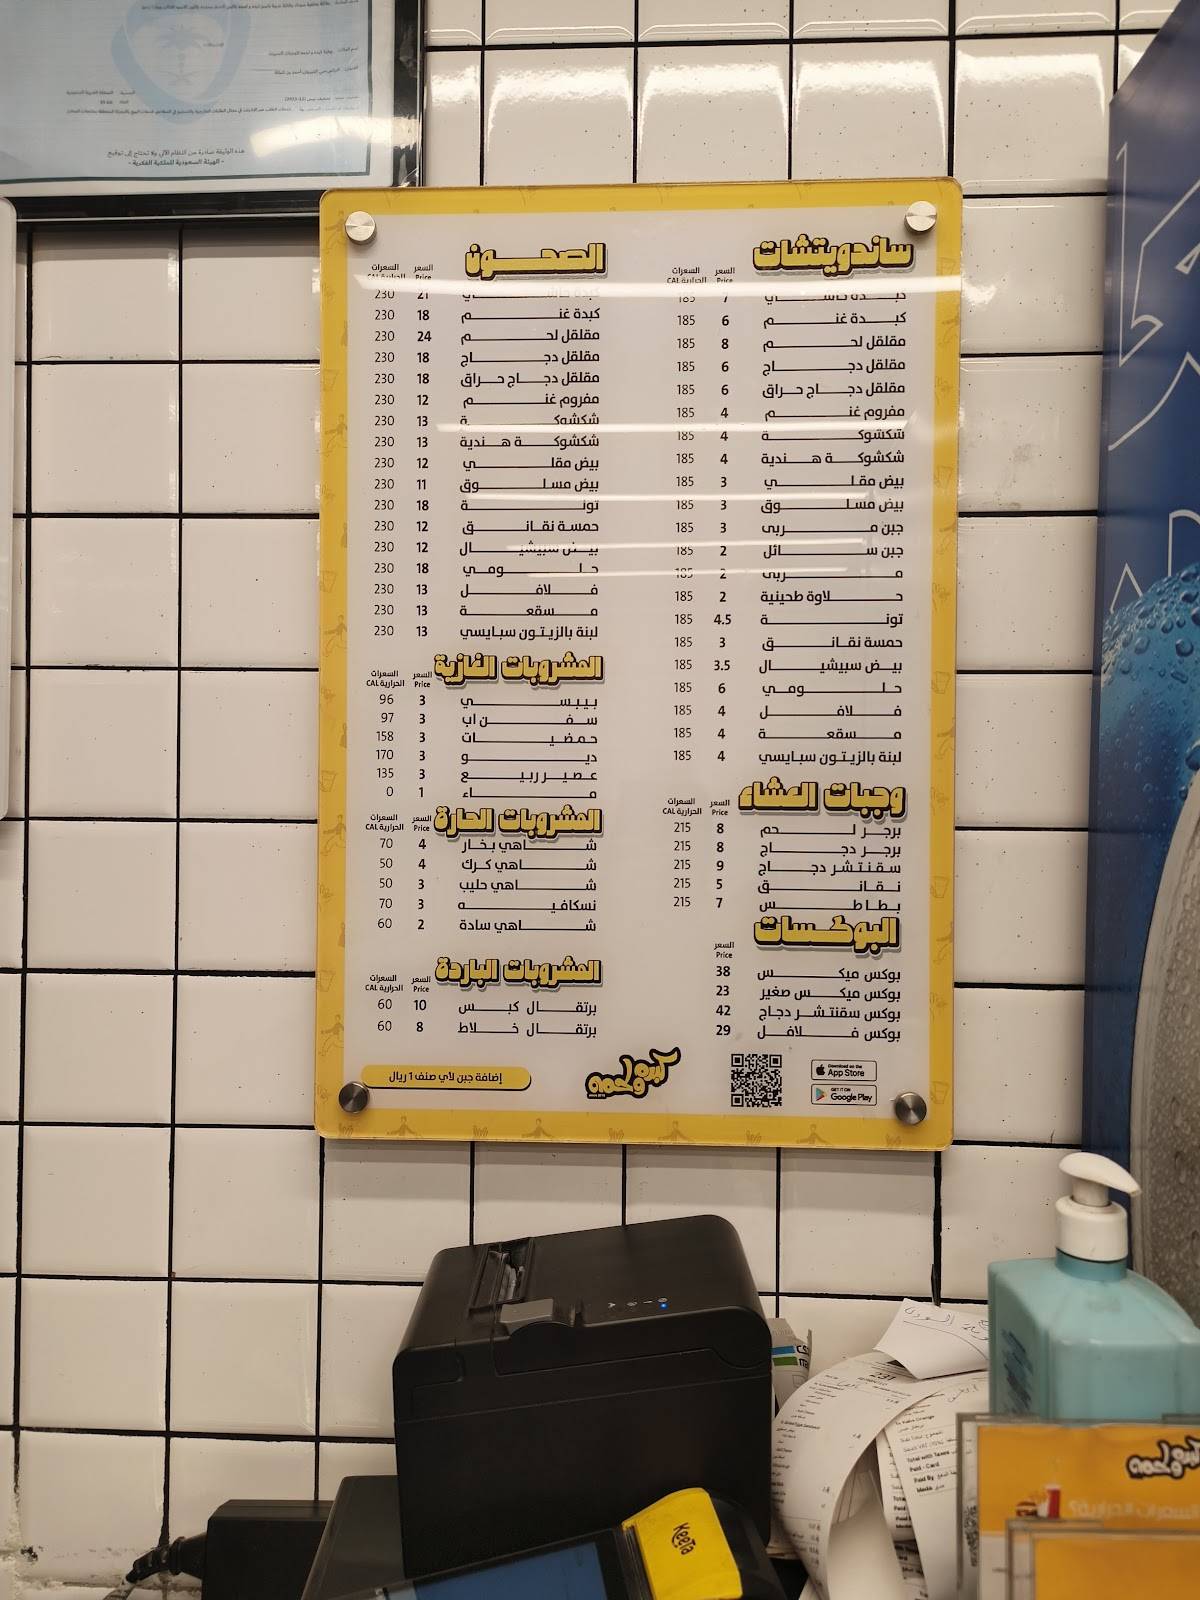 هذه الوثيقة صادرة من النظام الآلي ولا تحتاج إلى توقيع
- الهيئة السعودية للملكية الفكرية -
ساندويتشات
السعر Price السعرات الحرارية CAL
كبدة حاشي 7 185
كبدة غنم 6 185
مقلقل لحم 8 185
مقلقل دجاج 6 185
مقلقل دجاج حراق 6 185
مفروم غنم 4 185
شكشوكة 4 185
شكشوكة هندية 4 185
بيض مقلي 3 185
بيض مسلوق 3 185
جبن مربى 3 185
جبن سائل 2 185
مربى 2 185
حلاوة طحينية 2 185
تونة 4.5 185
خمسة نقانق 3 185
بيض سبيشيال 3.5 185
حلومي 6 185
فلافل 4 185
مسقعة 4 185
لبنة بالزيتون سبايسي 4 185
وجبات العشاء
السعر Price السعرات الحرارية CAL
برجر لحم 8 215
برجر دجاج 8 215
سقنتشر دجاج 9 215
نقانق 5 215
بطاطس 7 215
البوكسات
السعر Price
بوكس ميكس 38
بوكس ميكس صغير 23
بوكس سقنتشر دجاج 42
بوكس فلافل 29
الصحون
السعر Price السعرات الحرارية CAL
كبدة حاشي 21 230
كبدة غنم 18 230
مقلقل لحم 24 230
مقلقل دجاج 18 230
مقلقل دجاج حراق 18 230
مفروم غنم 12 230
شكشوكة 13 230
شكشوكة هندية 13 230
بيض مقلي 12 230
بيض مسلوق 11 230
تونة 18 230
خمسة نقانق 12 230
بيض سبيشيال 12 230
حلومي 18 230
فلافل 13 230
مسقعة 13 230
لبنة بالزيتون سبايسي 13 230
المشروبات الغازية
السعر Price السعرات الحرارية CAL
بيبسي 3 96
سفن اب 3 97
حمضيات 3 158
ديو 3 170
عصير ربيع 3 135
ماء 1 0
المشروبات الحارة
السعر Price السعرات الحرارية CAL
شاهي بخار 4 70
شاهي كرك 4 50
شاهي حليب 3 50
نسكافيه 3 70
شاهي سادة 2 60
المشروبات الباردة
السعر Price السعرات الحرارية CAL
برتقال كبس 10 60
برتقال خلاط 8 60
إضافة جبن لأي صنف 1 ريال
كبده ولحمه
Download on the App Store
GET IT ON Google Play
231
Total with Taxes
Paid - Card
Paid By
KeeTa
كبده ولحمه